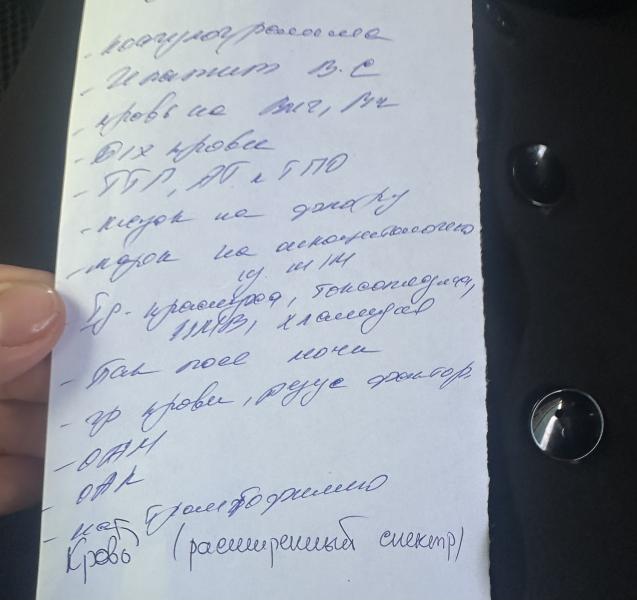 - коагулограмма
- Гепатит В.С
- кровь на Вич, Rw
- б/х крови
- ТТГ, АТ к ТПО
- мазок на флору
- мазок на онкоцитологию
из ш/м
Ig - краснуха, токсоплазма,
ЦМВ, хламидия
- Бак посев мочи
- гр крови, резус фактор.
- ОАМ
- ОАК
- на тромбофилию
Кровь (расширенный спектр)